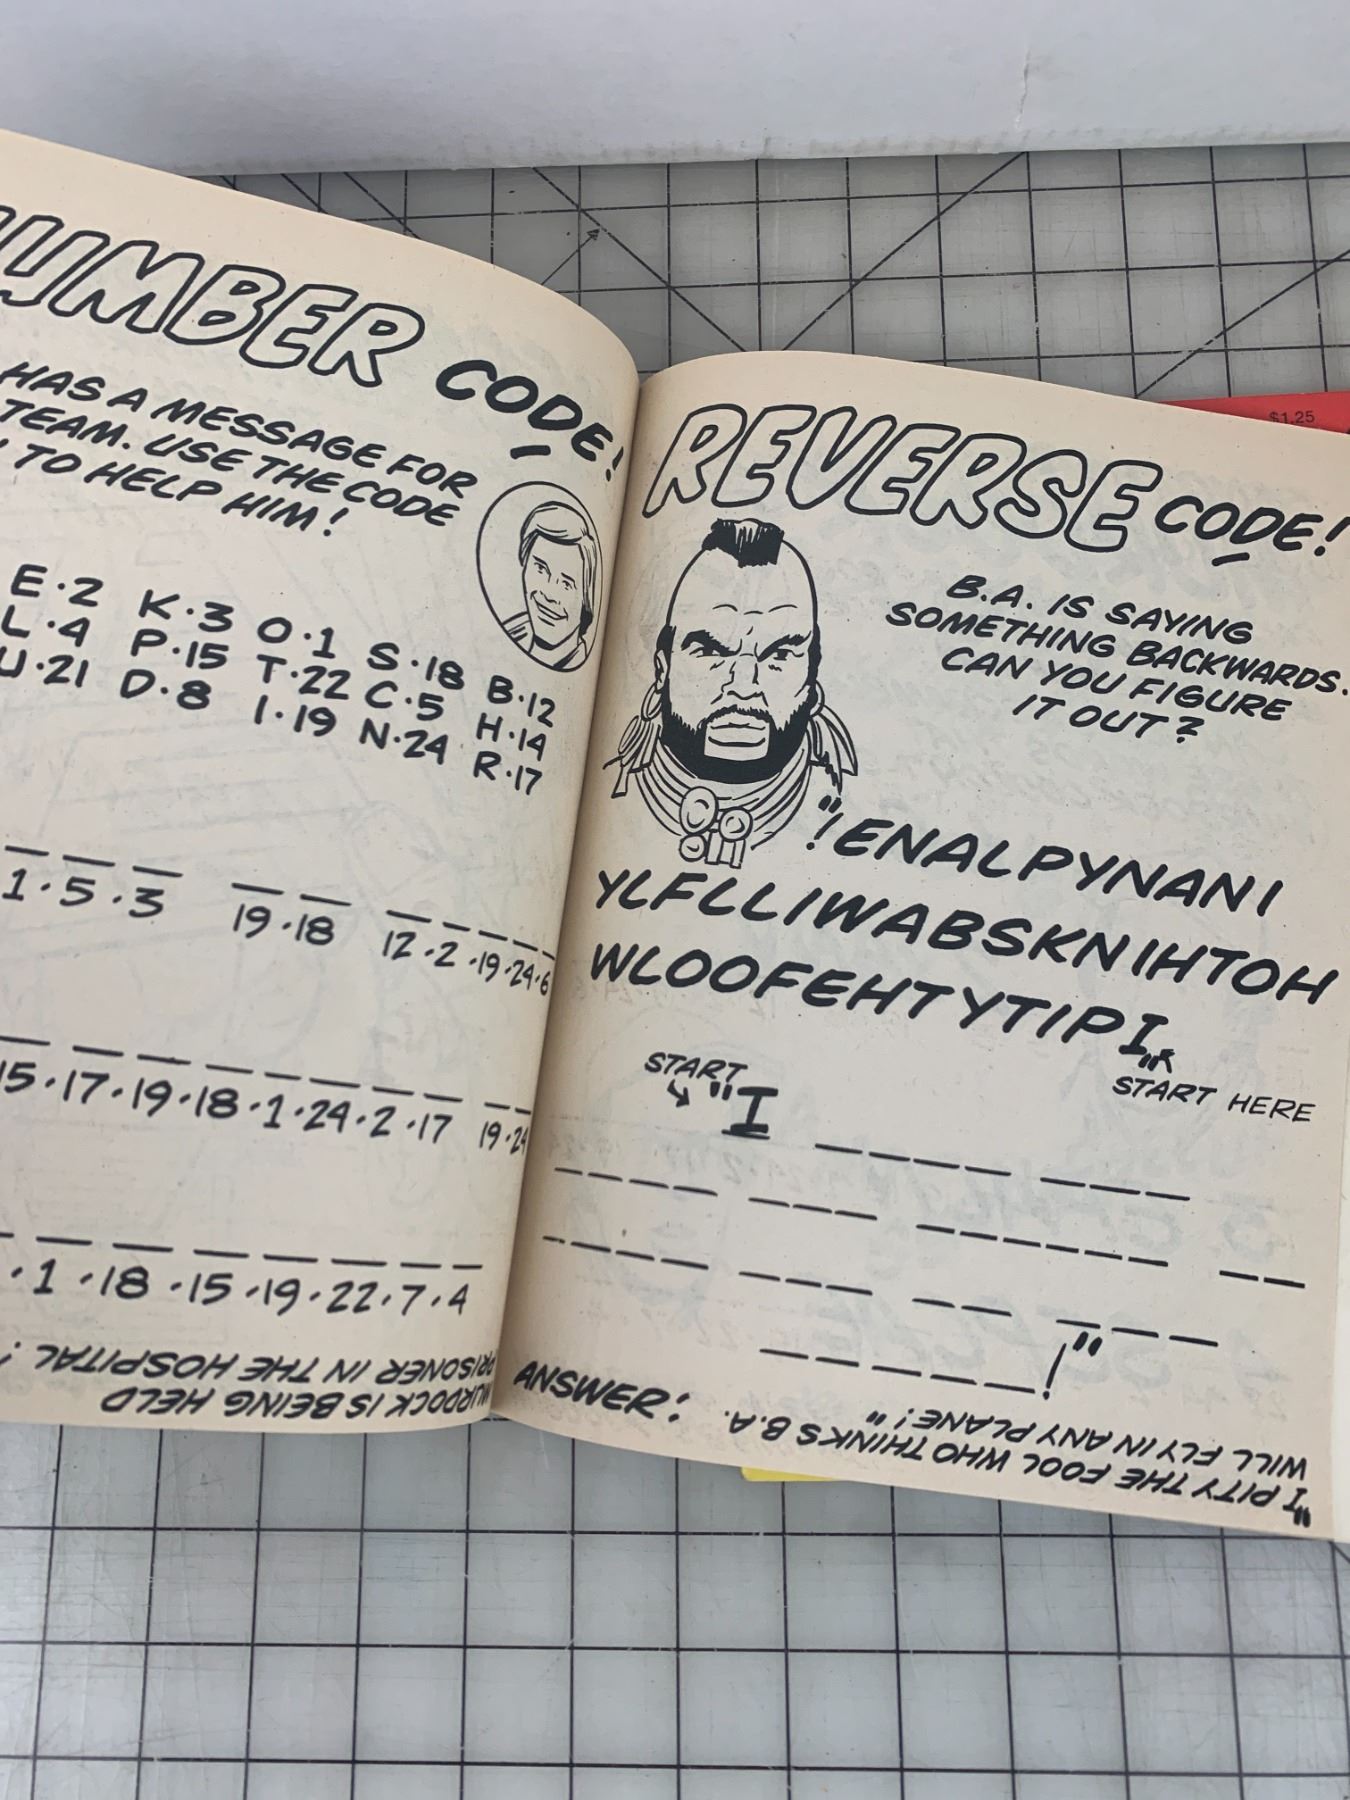 NUMBER CODE!
HAS A MESSAGE FOR
TEAM. USE THE CODE
TO HELP HIM!
E·2 K·3 O·1 S·18 B·12
L·4 P·15 T·22 C·5 H·14
U·21 D·8 I·19 N·24 R·17
1·5·3 19·18 12·2·19·24·6
15·17·19·18·1·24·2·17 19·24
·1·18·15·19·22·7·4
MURDOCK IS BEING HELD
PRISONER IN THE HOSPITAL!
$1.25
REVERSE CODE!
B.A. IS SAYING
SOMETHING BACKWARDS.
CAN YOU FIGURE
IT OUT?
"!ENALPYNANI
YLFLLIWABSKNIHTOH
WLOOFEHTYTIPI"
START HERE
START
"I
!"
ANSWER:
"I PITY THE FOOL WHO THINKS B.A.
WILL FLY IN ANY PLANE!"